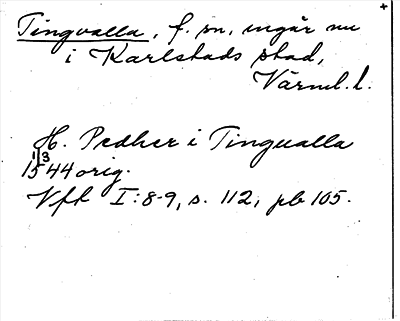 Tingvalla, f. sn, ingår nu
i Karlstads stad,
Värml. l.
H. Pedher i Tingualla
1/3
1544 orig.
Vfk I:8-9, s. 112, pb 105.